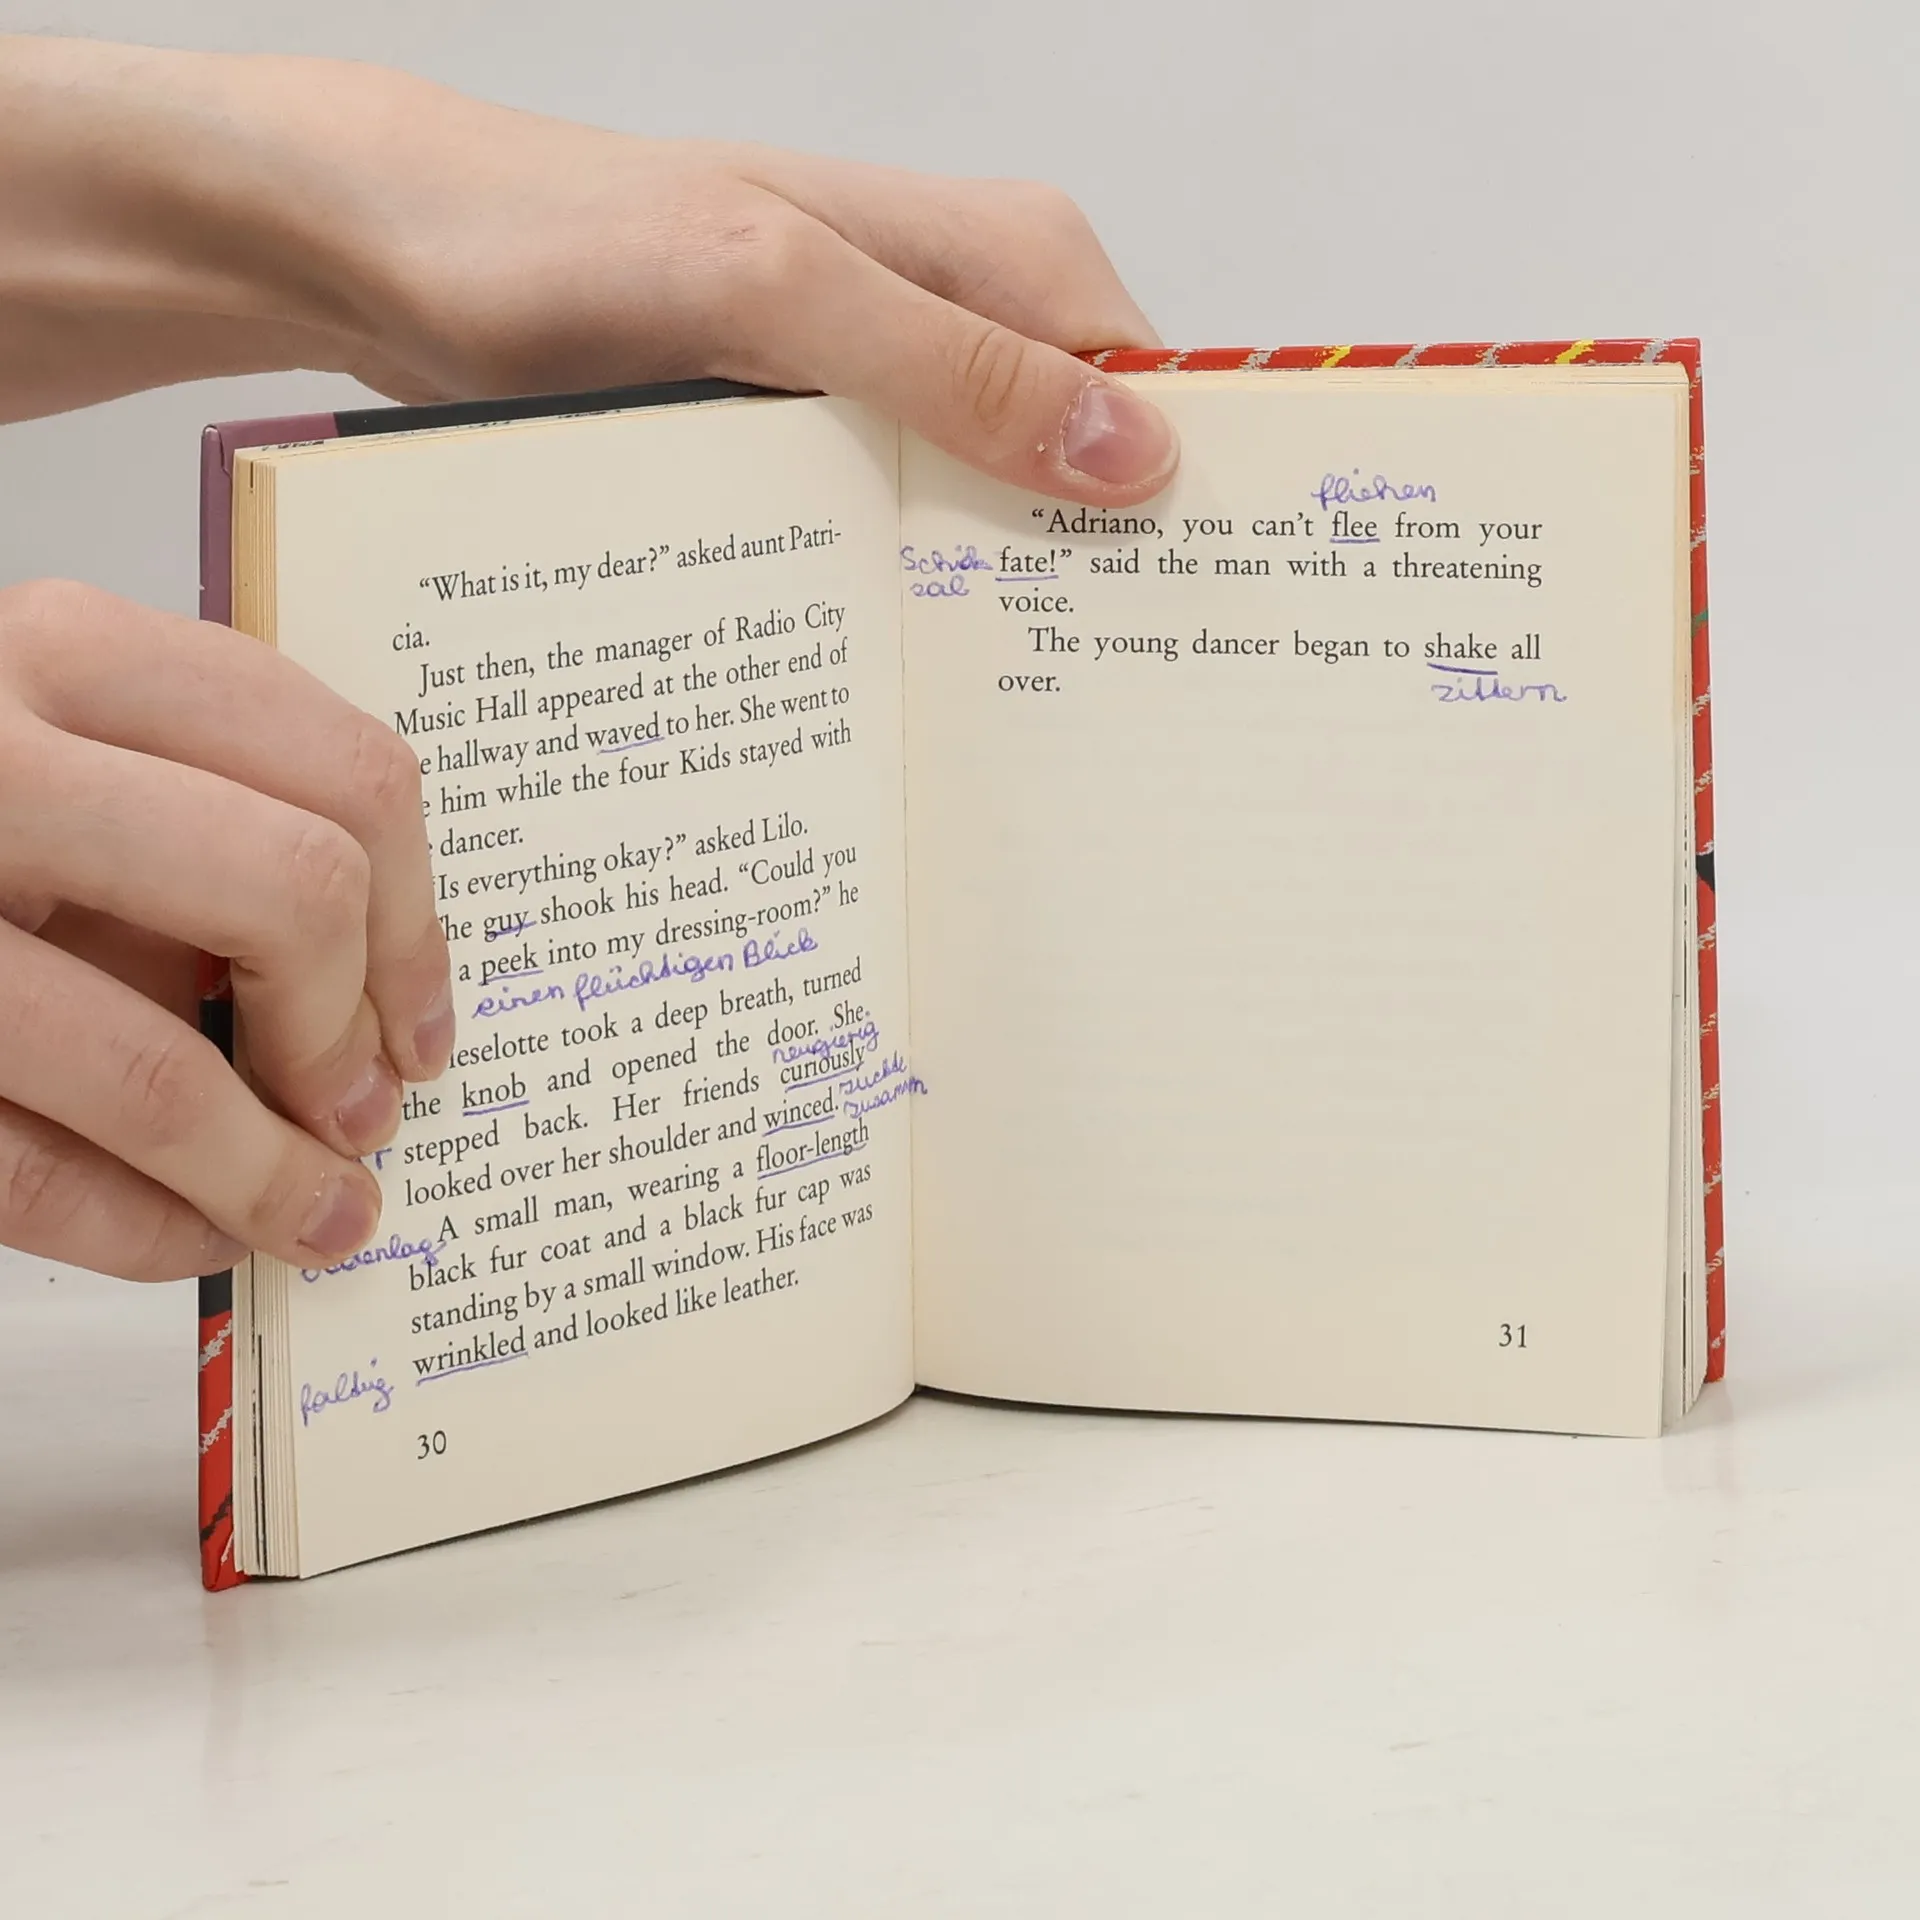 “What is it, my dear?” asked aunt Patri-
cia.
Just then, the manager of Radio City
Music Hall appeared at the other end of
hallway and waved to her. She went to
him while the four Kids stayed with
dancer.
“Is everything okay?” asked Lilo.
guy shook his head. “Could you
a peek into my dressing-room?” he
einen flüchtigen Blick
took a deep breath, turned
the knob and opened the door. She
neugierig
stepped back. Her friends curiously
zuckte
looked over her shoulder and winced.
zusammen
A small man, wearing a floor-length
black fur coat and a black fur cap was
standing by a small window. His face was
wrinkled and looked like leather.
faltig
30
fliehen
“Adriano, you can’t flee from your
Schick
sal
fate!” said the man with a threatening
voice.
The young dancer began to shake all
zittern
over.
31